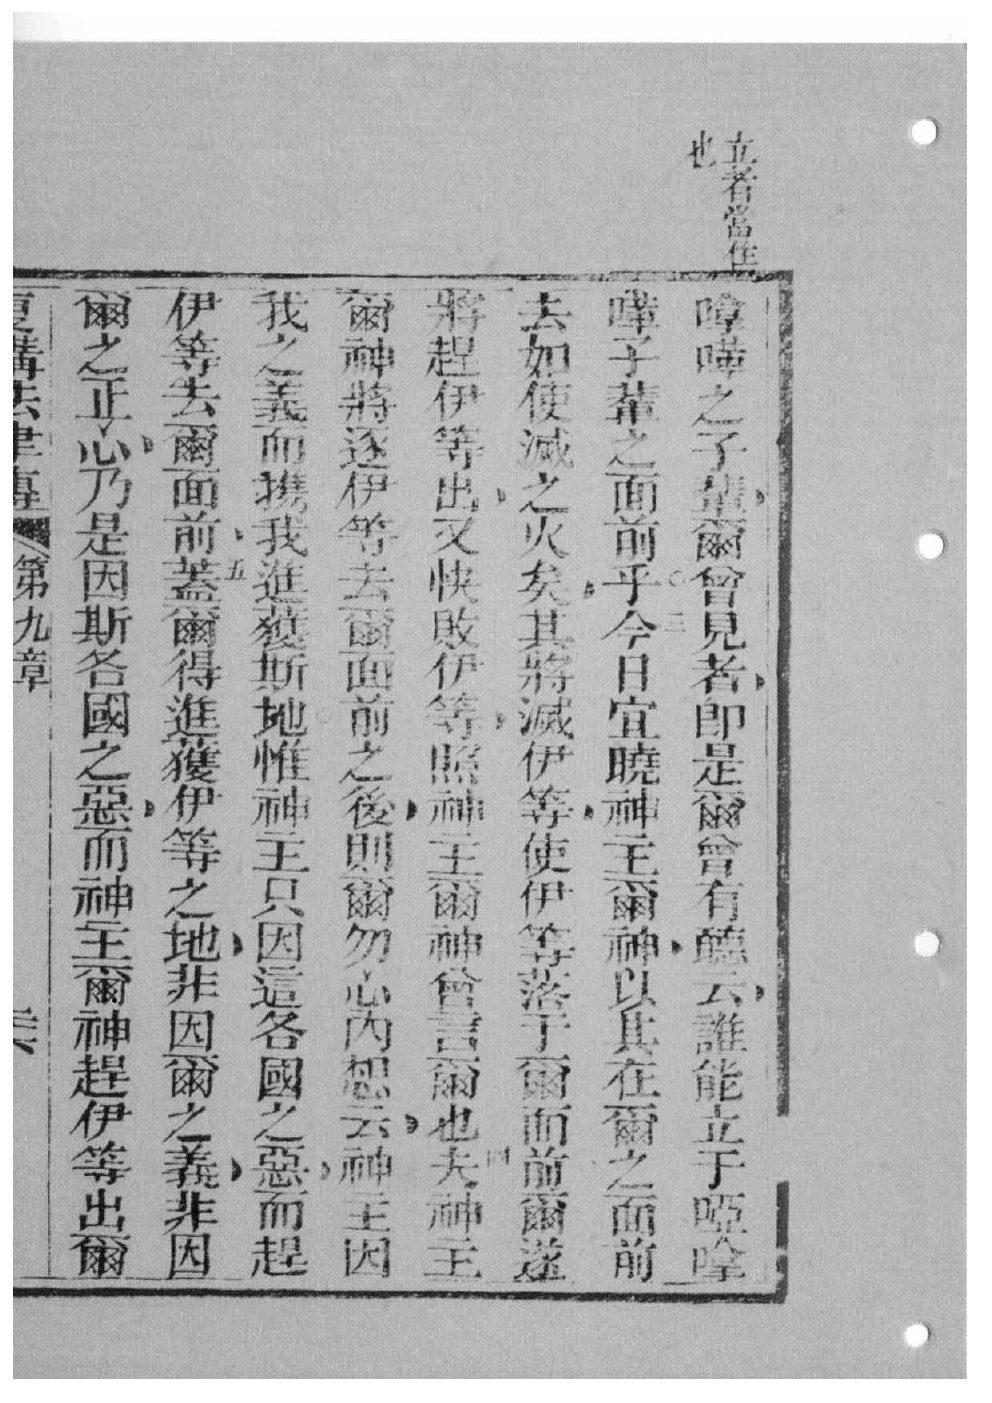 立者當住
也
㖔嘩之子輩爾曾見者即是爾曾有聽云誰能立于啞㖔
嘩子輩之面前乎三今日宜曉神主爾神以其在爾之面前
去如使滅之火矣其將滅伊等使伊等落于爾面前爾遂
將趕伊等出又快敗伊等照神主爾神曾言爾也四夫神主
爾神將逐伊等去爾面前之後則爾勿心內想云神主因
我之義而携我進獲斯地惟神主只因這各國之惡而趕
伊等去爾面前五蓋爾得進獲伊等之地非因爾之義非因
爾之正心乃是因斯各國之惡而神主爾神趕伊等出爾
復講法律傳 第九章